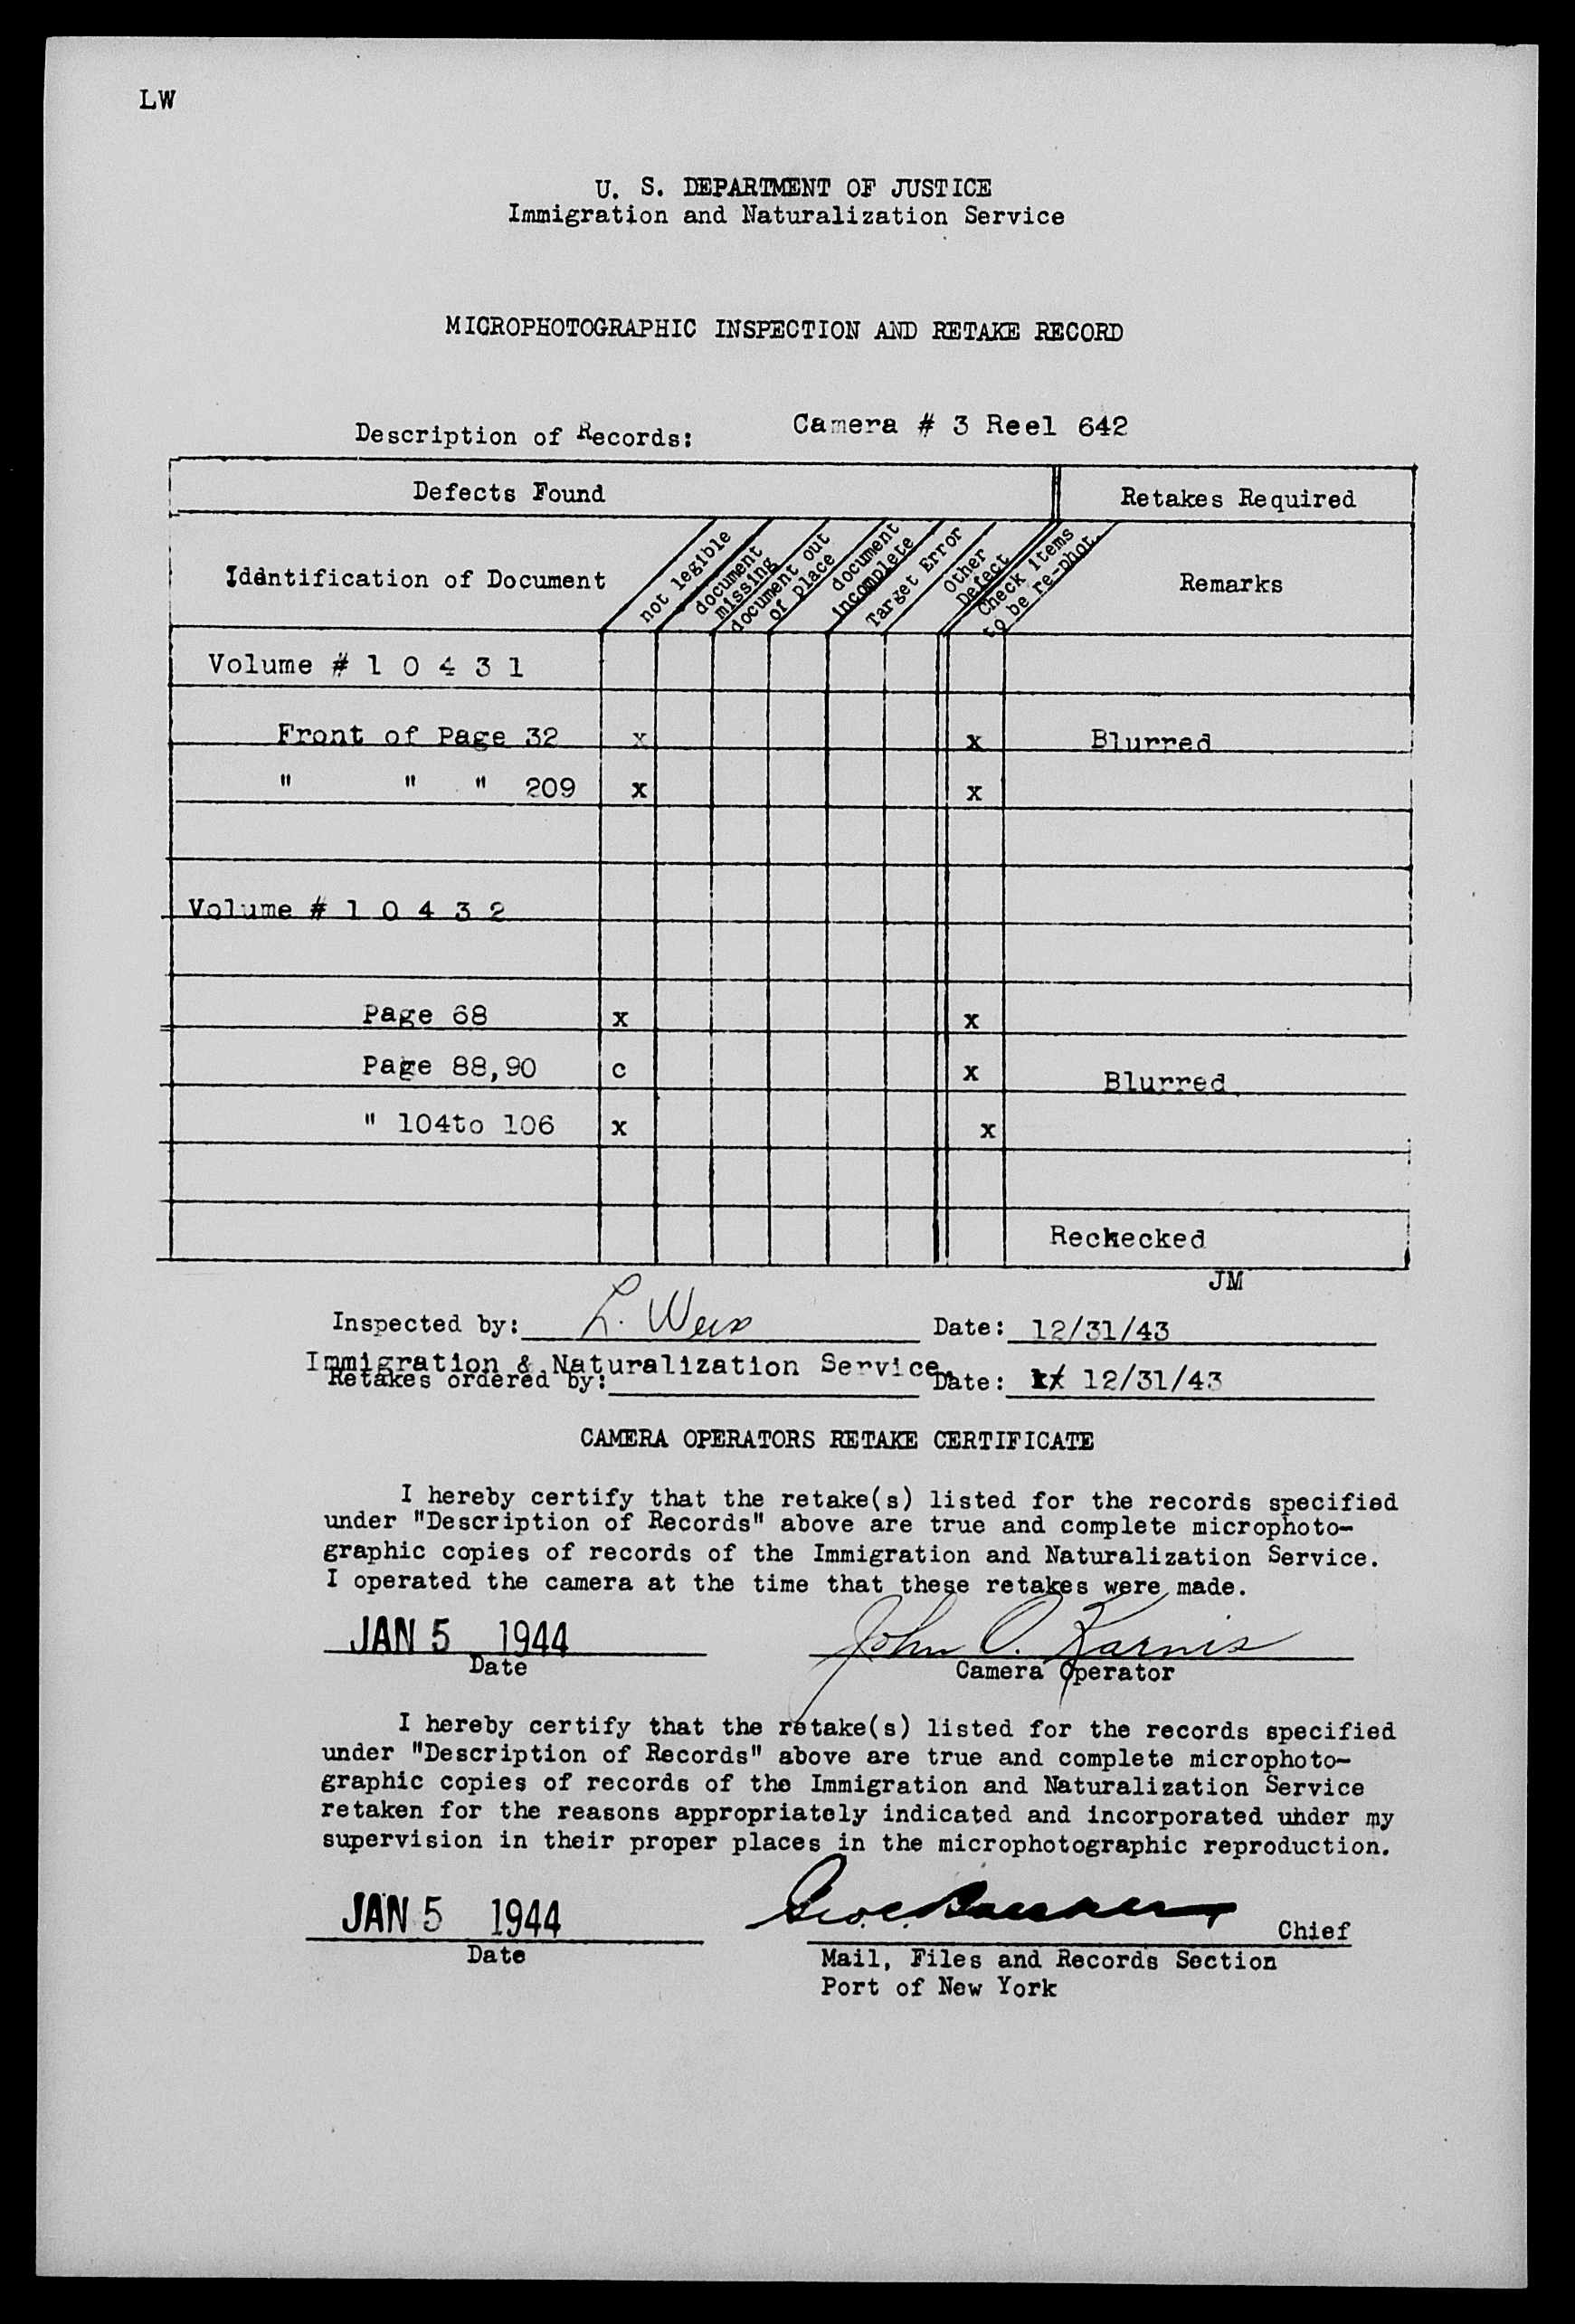 LW
U. S. DEPARTMENT OF JUSTICE
Immigration and Naturalization Service
MICROPHOTOGRAPHIC INSPECTION AND RETAKE RECORD
Description of Records: Camera # 3 Reel 642
Defects Found Retakes Required
Identification of Document not legible document missing document out of place document incomplete Target Error Other Defect Check items to be re-phot. Remarks
Volume # 1 0 4 3 1
Front of Page 32 x x Blurred
" " " 209 x x
Volume # 1 0 4 3 2
Page 68 x x
Page 88,90 c x Blurred
" 104to 106 x x
Rechecked
JM
Inspected by: L. Date: 12/31/43
Immigration & Naturalization Service.
Retakes ordered by: Date: 12/31/43
CAMERA OPERATORS RETAKE CERTIFICATE
I hereby certify that the retake(s) listed for the records specified
under "Description of Records" above are true and complete microphoto-
graphic copies of records of the Immigration and Naturalization Service.
I operated the camera at the time that these retakes were made.
JAN 5 1944 John O. Karnis
Date Camera Operator
I hereby certify that the retake(s) listed for the records specified
under "Description of Records" above are true and complete microphoto-
graphic copies of records of the Immigration and Naturalization Service
retaken for the reasons appropriately indicated and incorporated under my
supervision in their proper places in the microphotographic reproduction.
JAN 5 1944 Chief
Date Mail, Files and Records Section
Port of New York